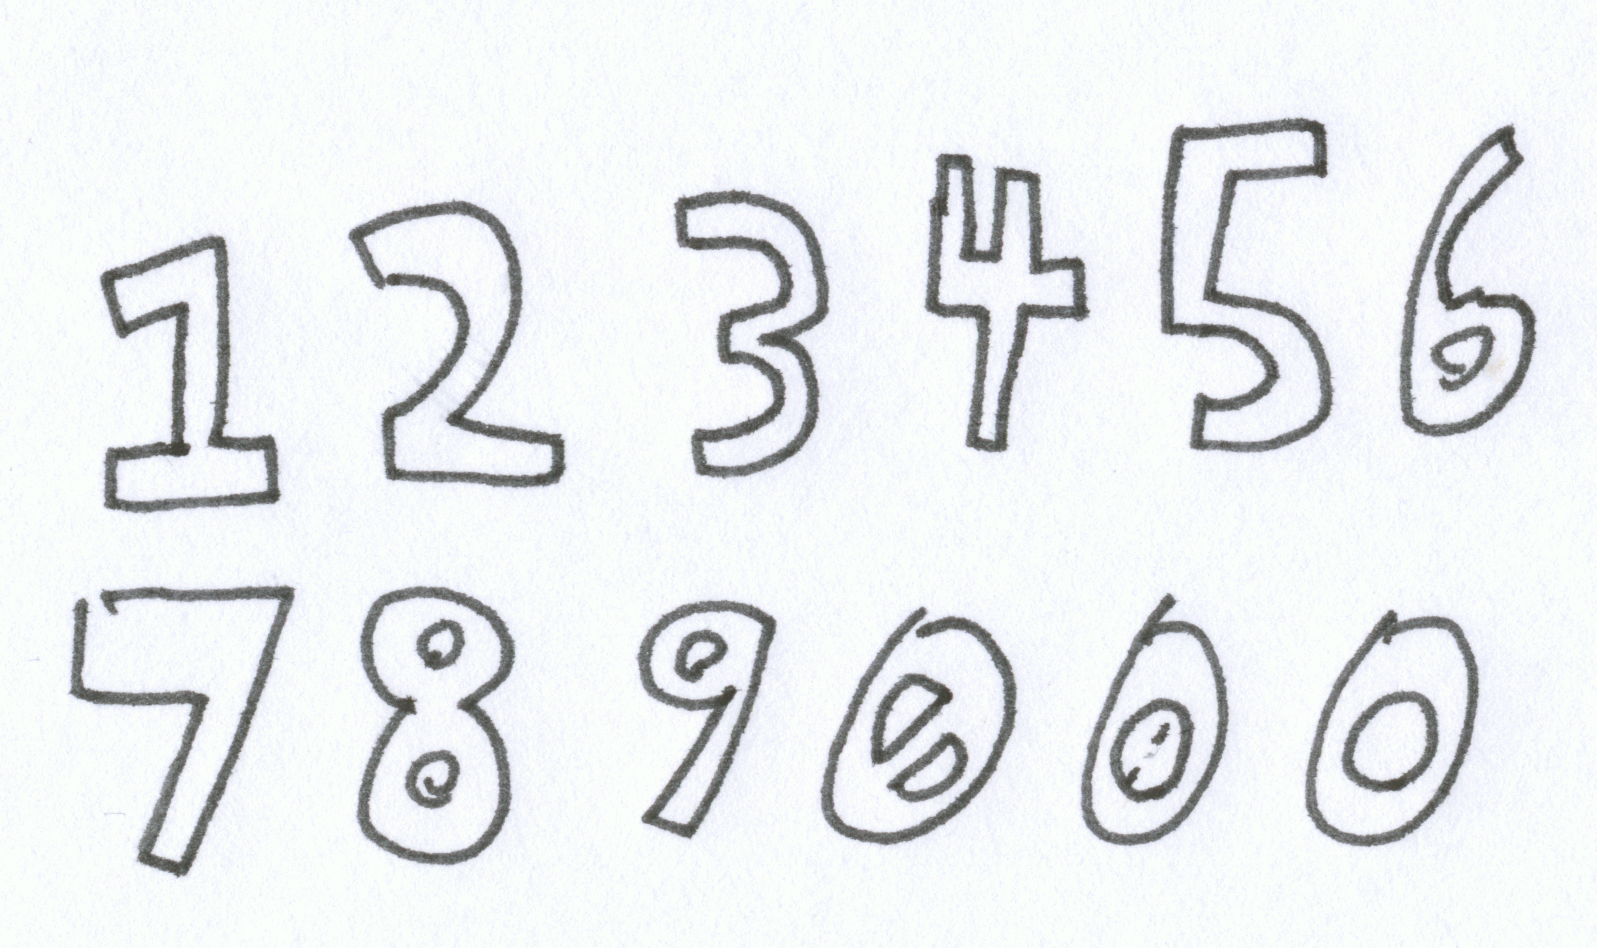 123456
789000